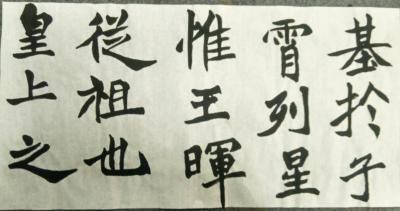 皇上之
從祖也
惟王暉
霄列星
基於子